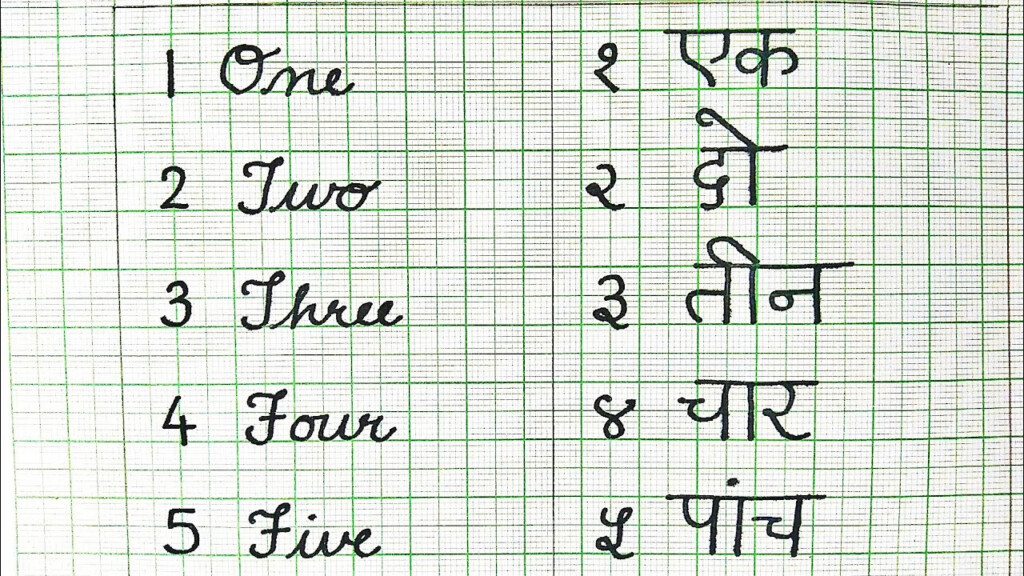 1 One १ एक
2 Two २ दो
3 Three ३ तीन
4 Four ४ चार
5 Five ५ पांच